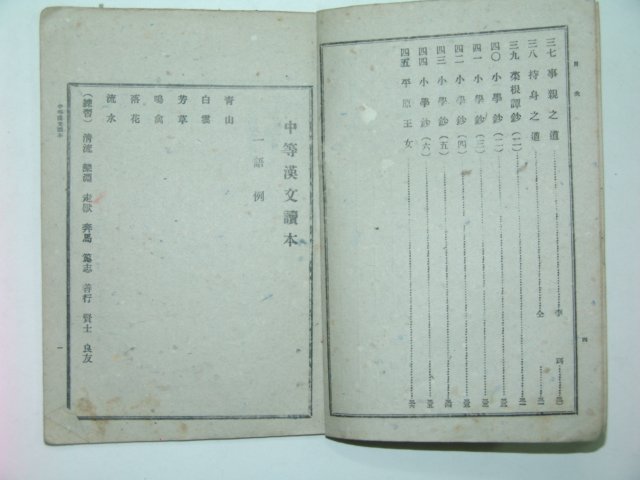 目次
三七 事親之道 李珥
三八 持身之道 仝
三九 菜根譚鈔(二)
四〇 小學鈔(二)
四一 小學鈔(三)
四二 小學鈔(四)
四三 小學鈔(五)
四四 小學鈔(六)
四五 平原王女
四
中等漢文讀本
一 語例
青山
白雲
芳草
鳴禽
落花
流水
(練習) 清流 深淵 走獸 奔馬 篤志 善行 賢士 良友
中等漢文讀本
一